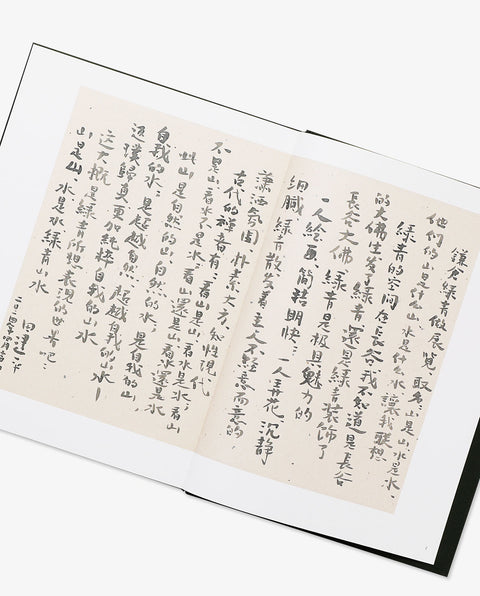 鎌倉、綠青做展覽、取名、山是山、水是水、
他們的山是什么山、水是什么水、讓我联想
綠青的空间在長谷、我不知道是長谷
的大佛生发了綠青、還是綠青装飾了
長谷大佛、綠青是極具魅力的
一人绘画、簡洁明快…一人弄花、沉静
细腻、綠青散发着主人不经意而意的、
潇洒氛围、朴素大方、知性現代
古代的禅音有：看山是山、看水是水；看山
不是山、看水不是水；看山還是山、看水還是水
此山是自然的山、自然的水；是自我的山、
自我的水；是超越自然、超越自我的山水！
返璞歸真、更加純粹自我的山水
這大概是綠青所想表現的世界吧…
山是山、水是水、綠青山水